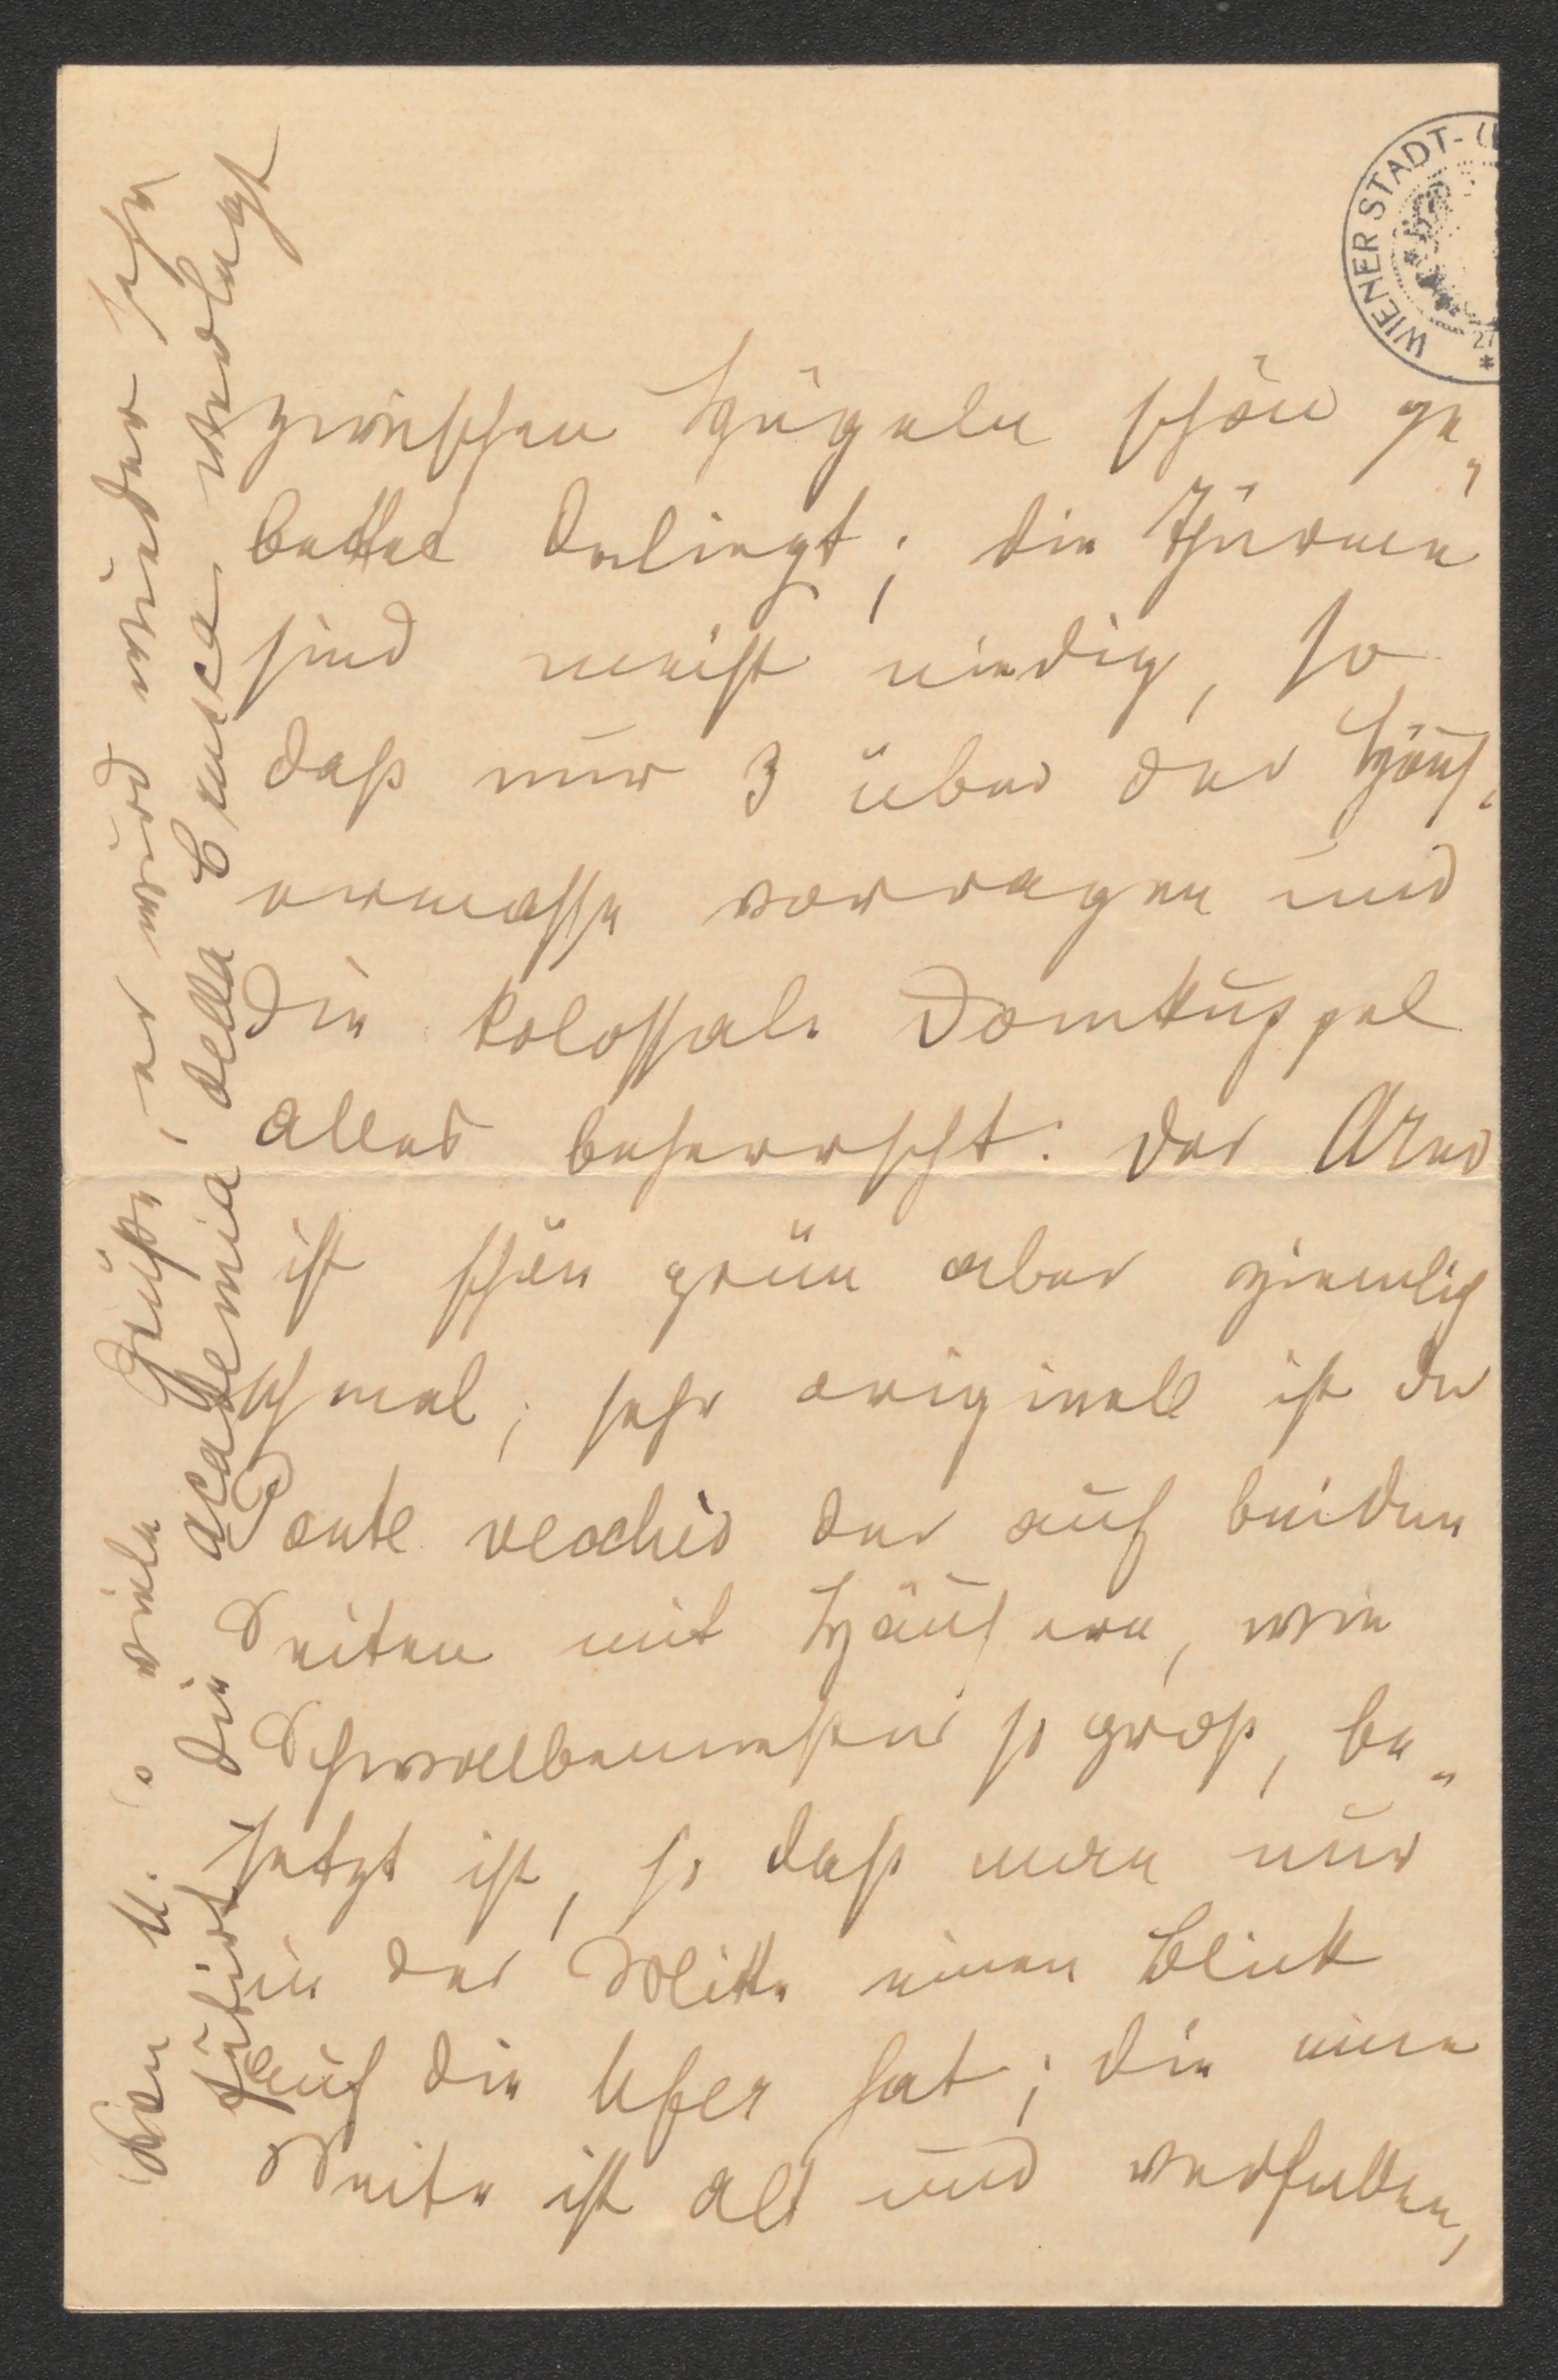 WIENER STADT-
27
zwischen Hügeln schön ge„
bettet daliegt; die Thürme
sind meist niedrig, so
daß nur 3 über der Häus„
ermasse vorragen und
die kolossale Domkuppel
alles beherrscht: der Arno
ist schön grün aber ziemlich
schmal; sehr originell ist der
Ponte vecchio der auf beiden
Seiten mit Häusern, wie
Schwalbennester so groß, be„
setzt ist, so daß man nur
in der Mitte einen Blick
auf die Ufer hat; die eine
Seite ist alt und verfallen,
Von M. viele Grüße, er wird wieder sehr
die academia della Crusca verlegt